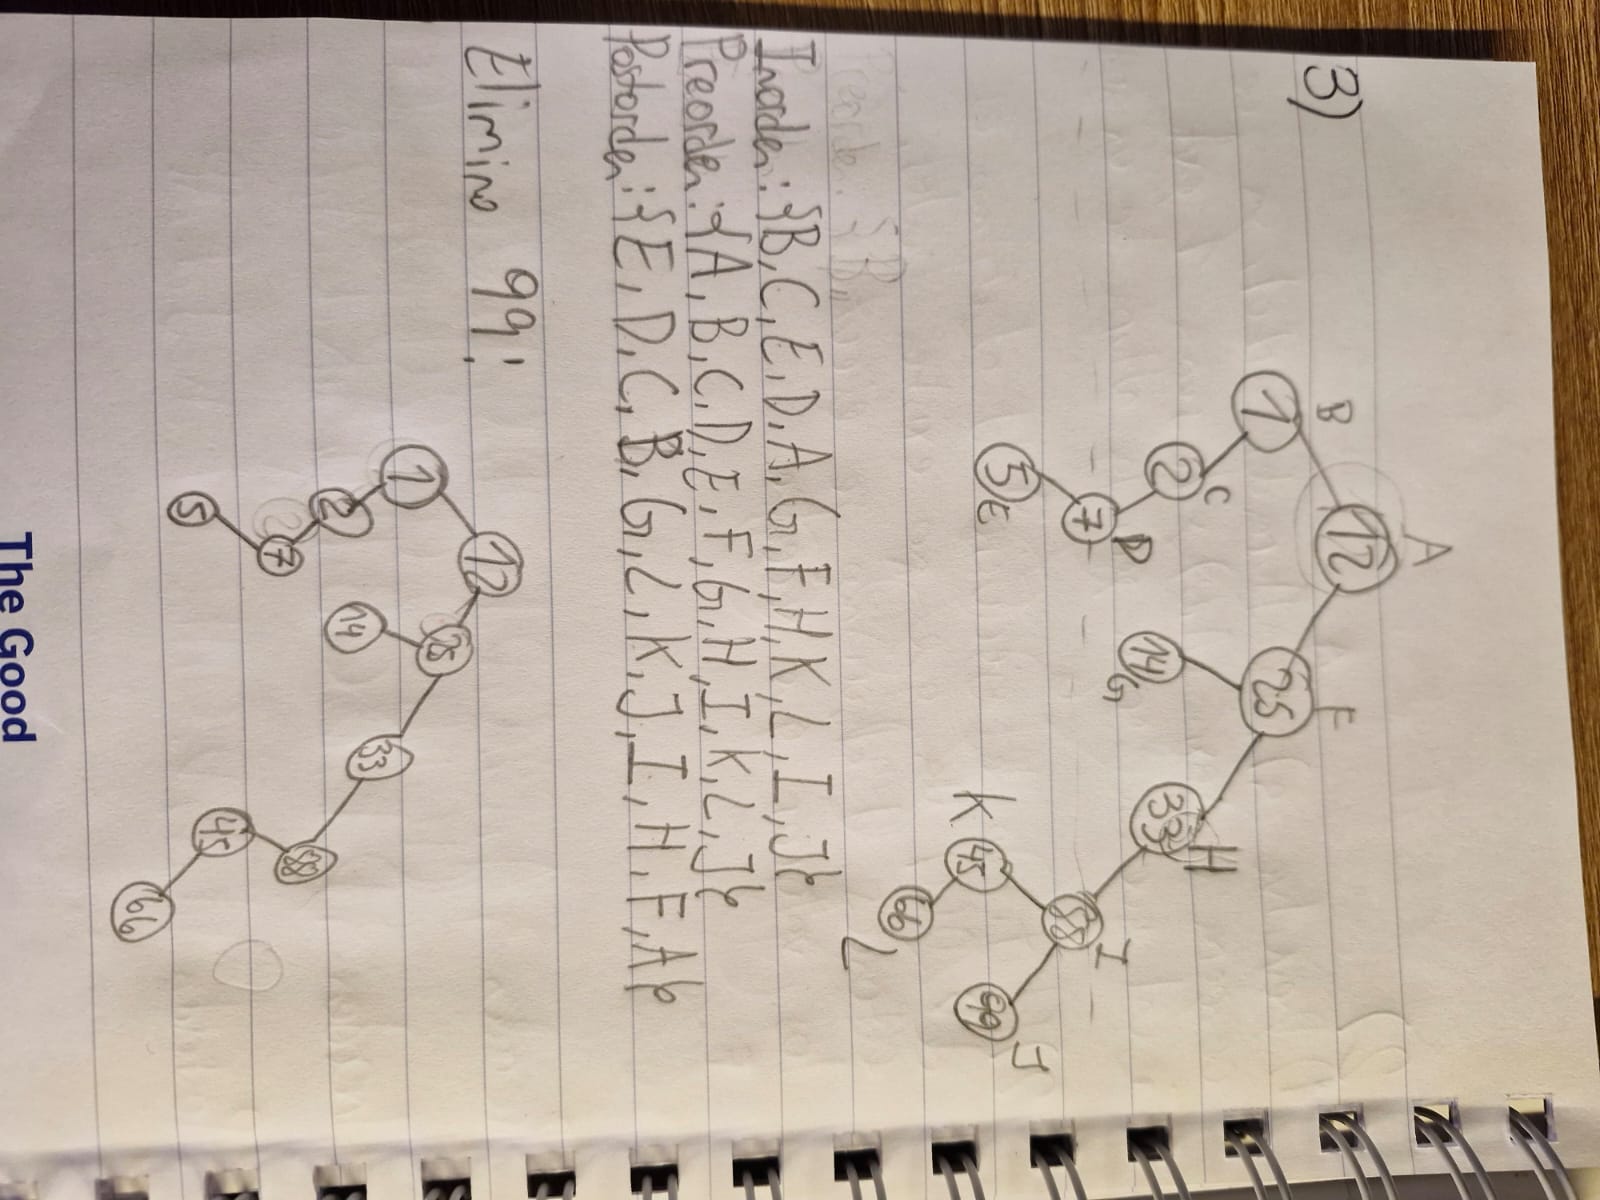 3)
A
12
B
F
1
25
C
2
H
33
D
7
14
G
I
88
E
5
K
45
99
J
66
L
Inorden: {B, C, E, D, A, G, F, H, K, L, I, J}
Preorden: {A, B, C, D, E, F, G, H, I, K, L, J}
Postorden: {E, D, C, B, G, L, K, J, I, H, F, A}
Elimino 99:
12
1
25
2
14
33
7
5
88
45
66
The Good